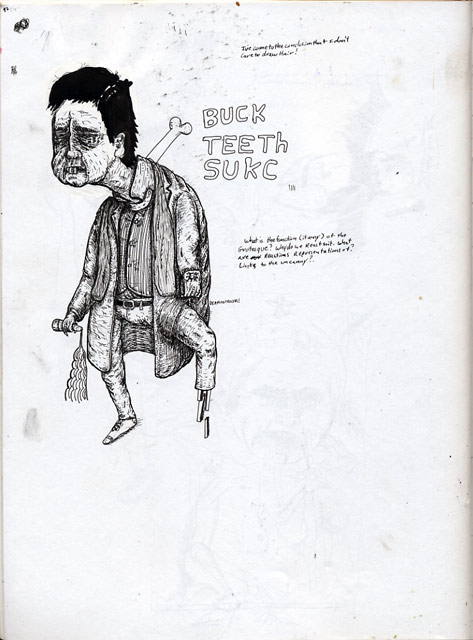 I've come to the conclusion that I don't
care to draw hair!
BUCK
TEETH
SUKC
!!!
What is the function (if any?) of the
Grotesque? Why do we React to it. What
are our Reactions Representations of?
Links to the uncanny?!